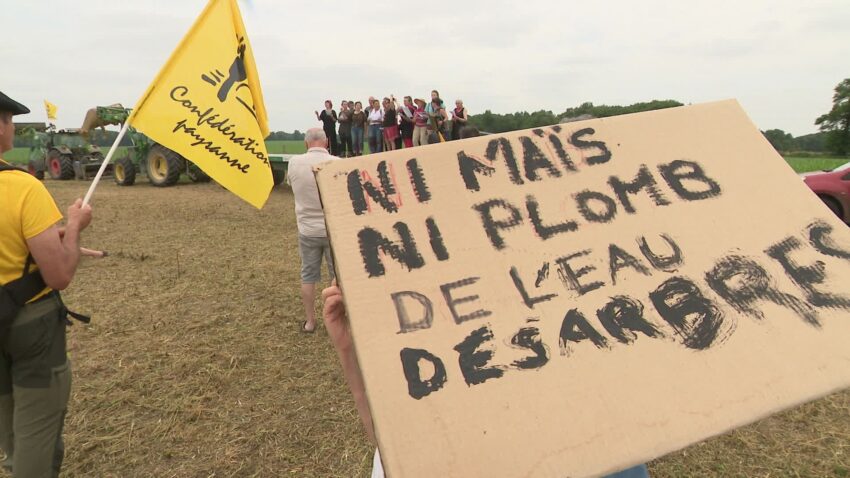 Confédération
paysanne
Ni MAÏS
Ni PLOMB
DE L'EAU
DES ARBRES